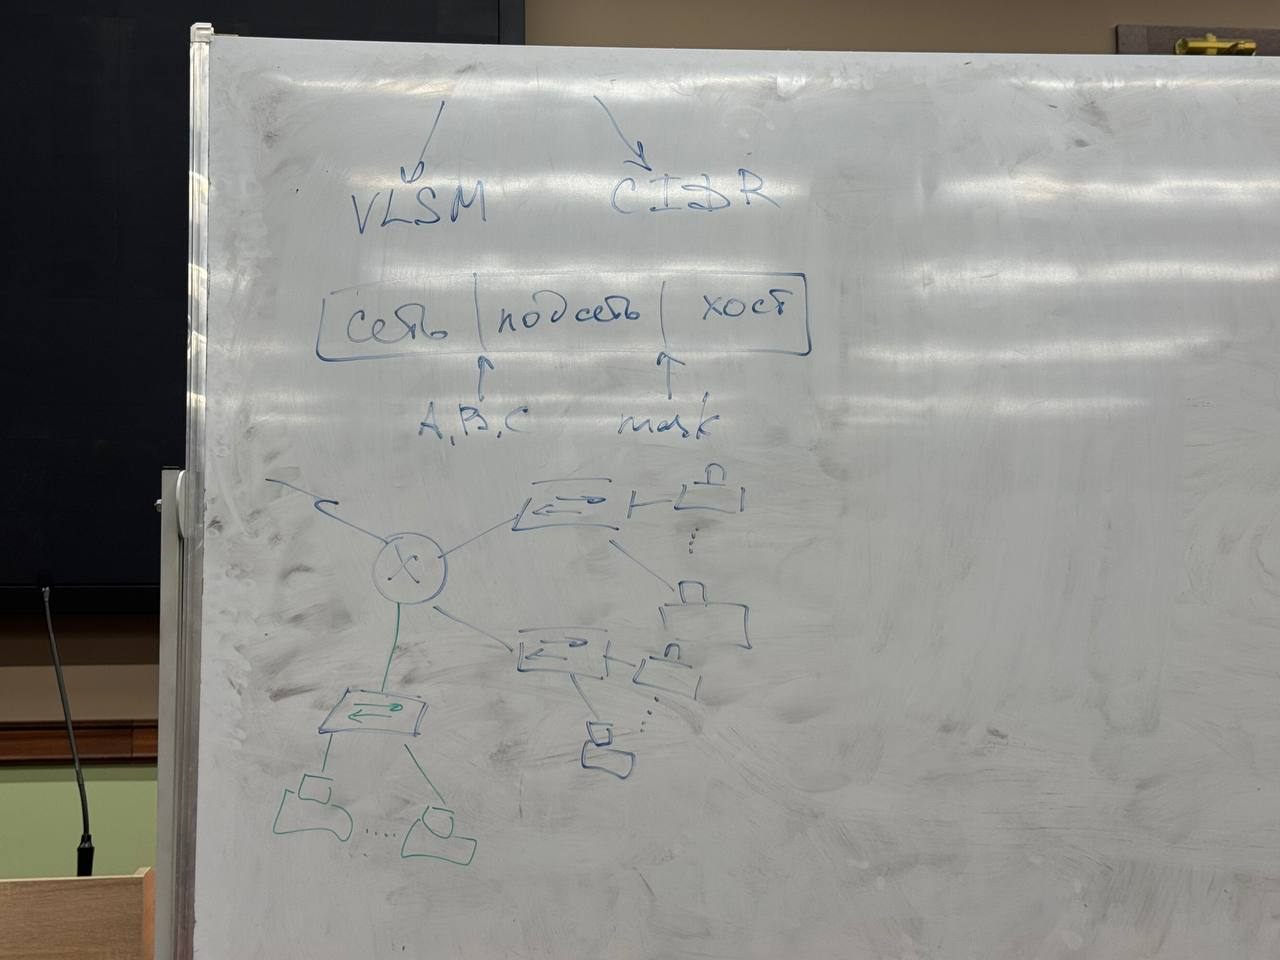 VLSM CIDR
сеть подсеть хост
A, B, C mask